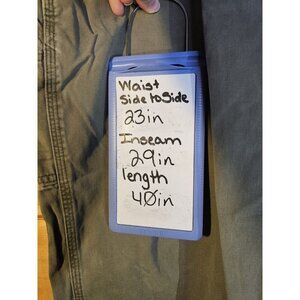 Waist
Side to Side
23in
Inseam
29in
length
40in